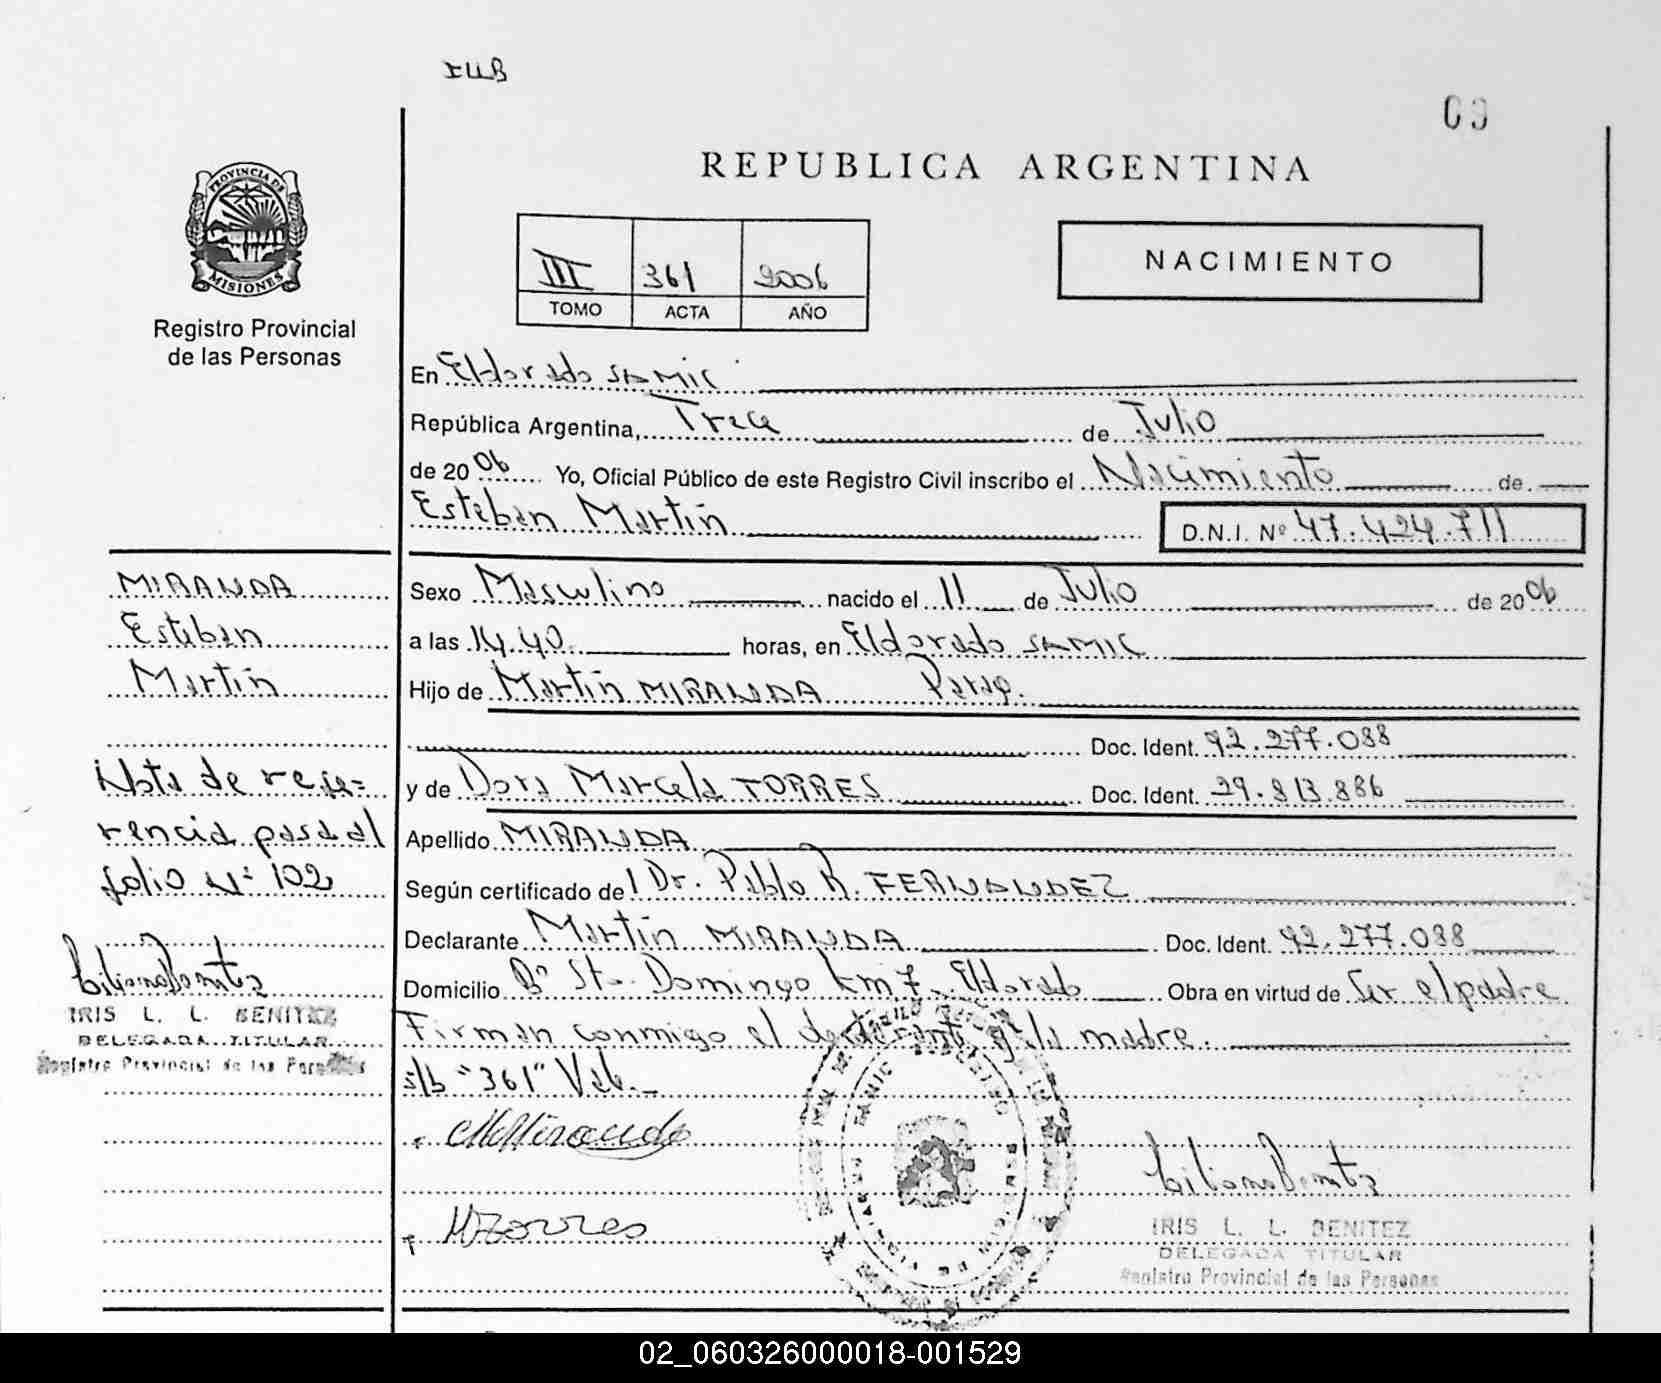 IUB
09
PROVINCIA DE
MISIONES
Registro Provincial
de las Personas
REPUBLICA ARGENTINA
III 361 2006
TOMO ACTA AÑO
NACIMIENTO
En Eldorado SAMIC
República Argentina, Trece de Julio
de 2006 Yo, Oficial Público de este Registro Civil inscribo el Nacimiento de
Esteban Martín D.N.I. Nº 47.424.711
MIRANDA
Esteban
Martín
Nota de refe=
rencia pasa al
folio Nº 102
IRIS L. L. BENITEZ
DELEGADA TITULAR
Registro Provincial de las Personas
Sexo Masculino nacido el 11 de Julio de 2006
a las 14.40. horas, en Eldorado SAMIC
Hijo de Martín MIRANDA Parag.
Doc. Ident. 92.277.088
y de Dora Marcela TORRES Doc. Ident. 29.813.886
Apellido MIRANDA
Según certificado del Dr. Pablo R. FERNANDEZ
Declarante Martín MIRANDA Doc. Ident. 92.277.088
Domicilio Bº Sto. Domingo km 7. Eldorado Obra en virtud de Ser el padre
Firman conmigo el declarante y la madre.
s/b "361" Vale.
MMiranda
MTorres
IRIS L. L. BENITEZ
DELEGADA TITULAR
Registro Provincial de las Personas
02_060326000018-001529